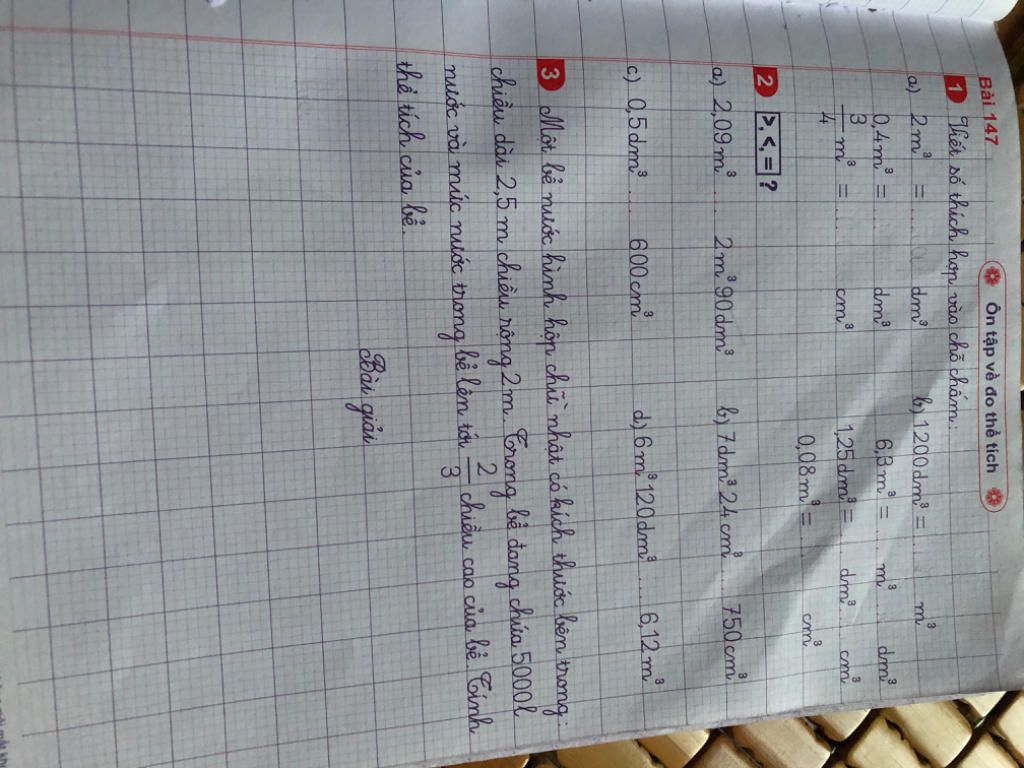 Bài 147
Ôn tập về đo thể tích
1 Viết số thích hợp vào chỗ chấm:
a) 2m³ = ........ dm³ b) 1200dm³ = ........ m³
0,4m³ = ........ dm³ 6,3m³ = ...... m³ ...... dm³
3/4 m³ = ........ cm³ 1,25dm³ = ...... dm³ ...... cm³
0,08m³ = ........ cm³
2 >, <, = ?
a) 2,09m³ ...... 2m³ 90dm³ b) 7dm³ 24cm³ ...... 750cm³
c) 0,5dm³ ...... 600cm³ d) 6m³ 120dm³ ...... 6,12m³
3 Một bể nước hình hộp chữ nhật có kích thước bên trong:
chiều dài 2,5m chiều rộng 2m. Trong bể đang chứa 5000l
nước và mức nước trong bể lên tới 2/3 chiều cao của bể. Tính
thể tích của bể.
Bài giải